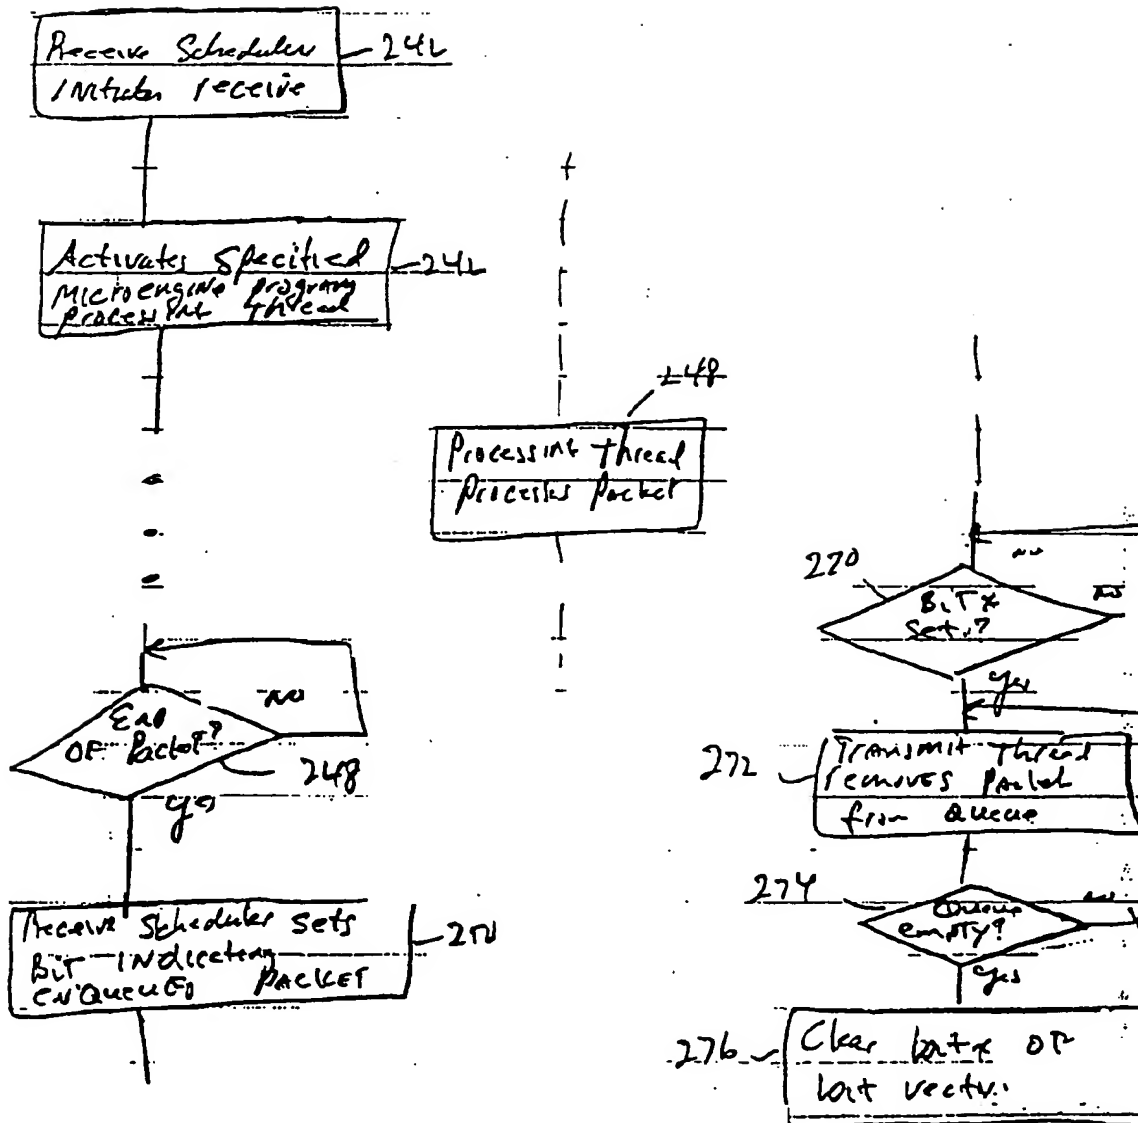 Receive Scheduler
Initiates receive
242
Activates Specified
Microengine program
processing thread
242
248
Processing thread
Processes Packet
End
OF Packet?
NO
248
yes
Receive Scheduler sets
BIT INdicating
ENQUEUED PACKET
270
BIT x
Set?
NO
NO
yes
272
TRANSMIT thread
removes Packet
from Queue
274
Queue
empty?
NO
yes
276
Clear bit x OF
bit vector